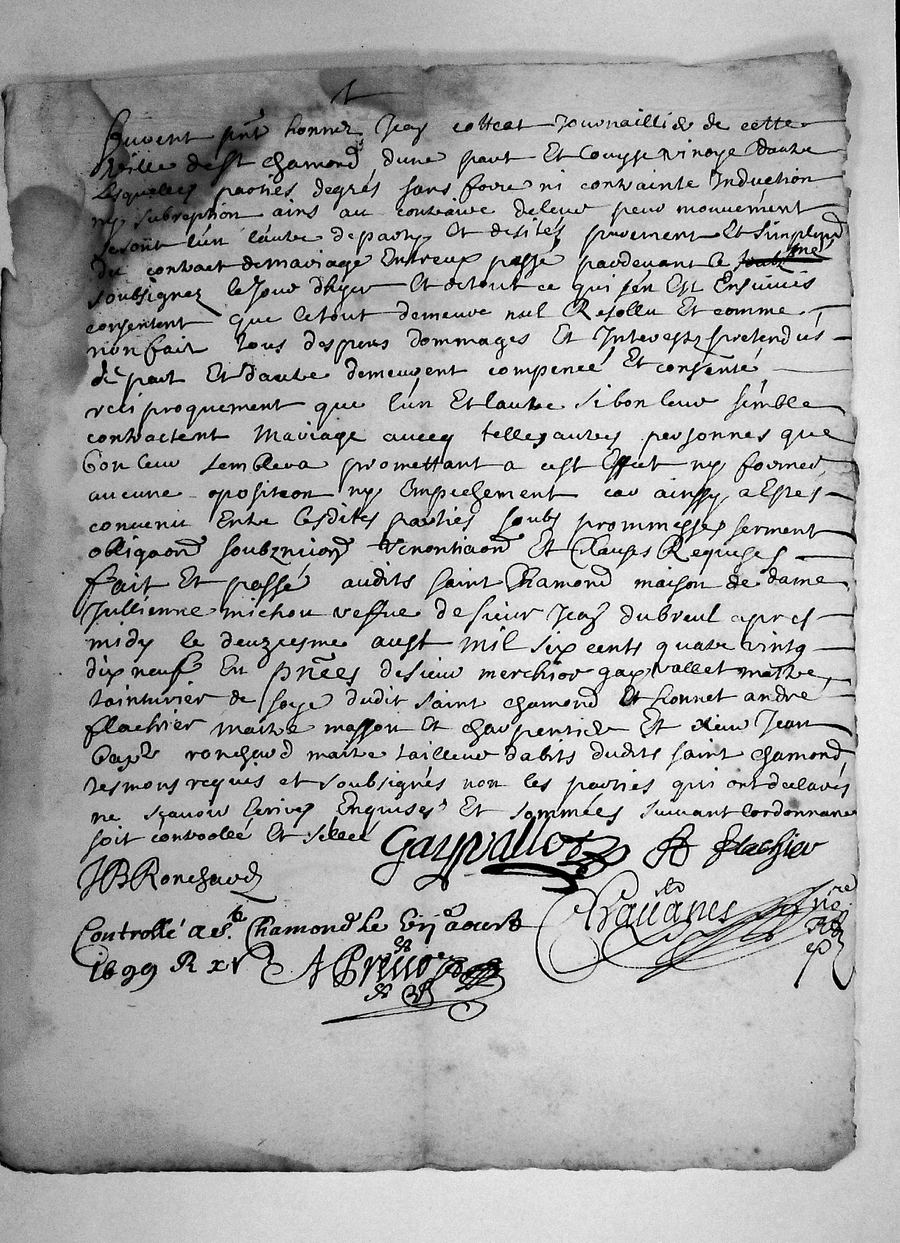 furent pñt honnez Jean collet Journaillier de cette
ville de st chamond dune part Et Louyse vinoye Dautre
Lesquelles parties degrés sans force ni contrainte Induction
ny subreption ains au contraire de leur peur mouvement
seront lun lautre departy Et desites purement Et Simplemt
du contract de mariage Entreux passé pardevant le nre
soubsignez le Jour dhyer Et de tout ce qui sen Est Ensuivis
consentent que le tout demeure nul Resollu Et comme
non fait tous despens dommages Et Interests pretendus
de part Et dautre demeurent compencé Et consenté
reciproquement que lun Et lautre si bon leur semble
contractent Mariage avecq telles autres personnes que
bon leur semblera promettant a cest Effect ny former
aucune oposition ny Empechement car ainsy a Estes
convenu Entre lesdites parties soubs prommesses serment
obligaond soubzmiond renontiaond Et Clauses Requises
fait Et passé audits saint Chamond maison de dame
Jullienne michou veffue de sieur Jean dubreul apres
midy le deuziesme aust mil six cents quatre vintg
dix neufs En pñces de sieur merchior gayvallet maitre
tainturier de soye dudit saint chamond Et honnet andre
flachier maitre masson Et charpentier Et sieur Jean
bapt ronchard maitre tailleur dabits dudits saint chamond
tesmons reques et soubsignés non les parties qui ont declarés
ne sçavoir Ecrire Enquises Et sommées suivant lordonnance
soit controollé Et sellé Gayvallet A flachier
JBRonchard
Controllé a st Chamond le aoust
1699 R xv s